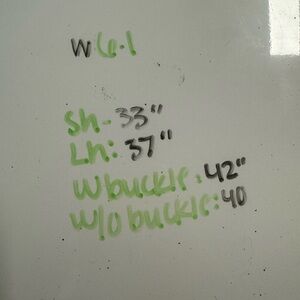 W 6.1
Sh- 33"
Ln: 37"
W buckle. 42"
W/o buckle: 40